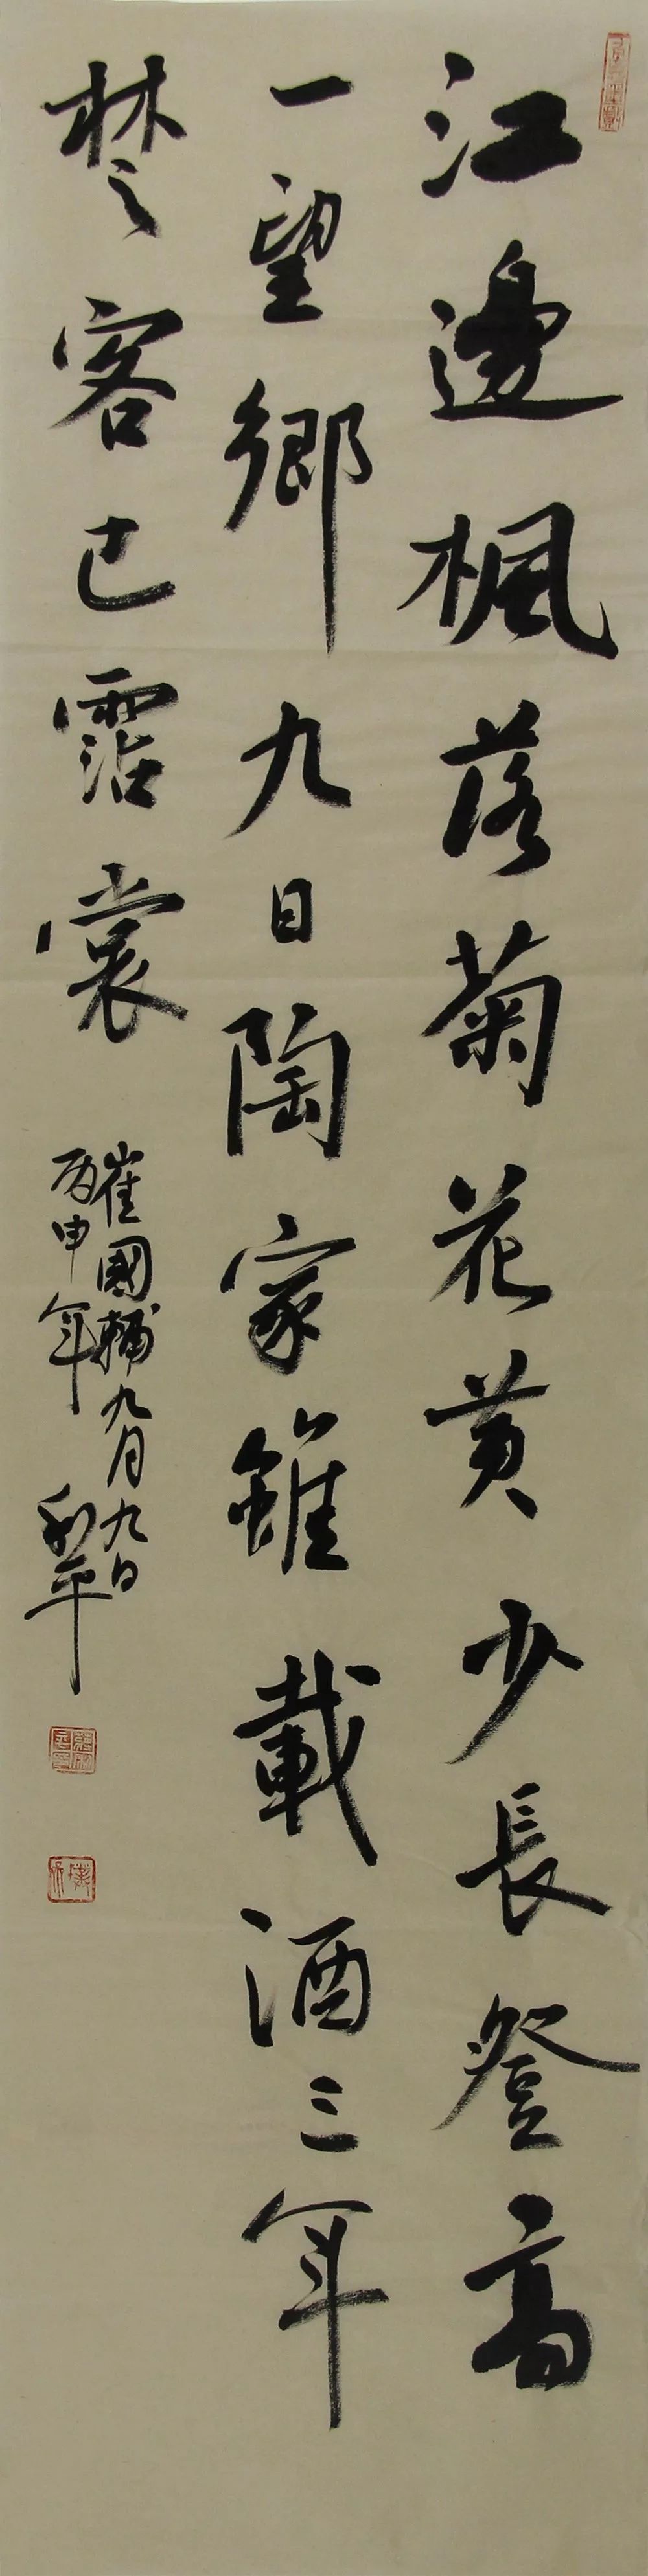 江邊楓落菊花黃少長登高
一望鄉九日陶家雖載酒三年
楚客已霑裳
崔國輔九月九日
丙申年利平